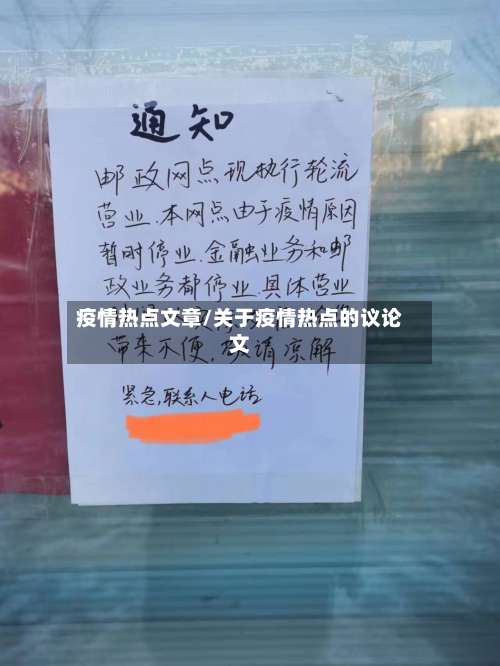 通知
邮政网点现执行轮流
营业.本网点由于疫情原因
暂时停业.金融业务和邮
政业务都停业.具体营业
疫情热点文章/关于疫情热点的议论
文
带来不便,敬请凉解
紧急,联系人电话